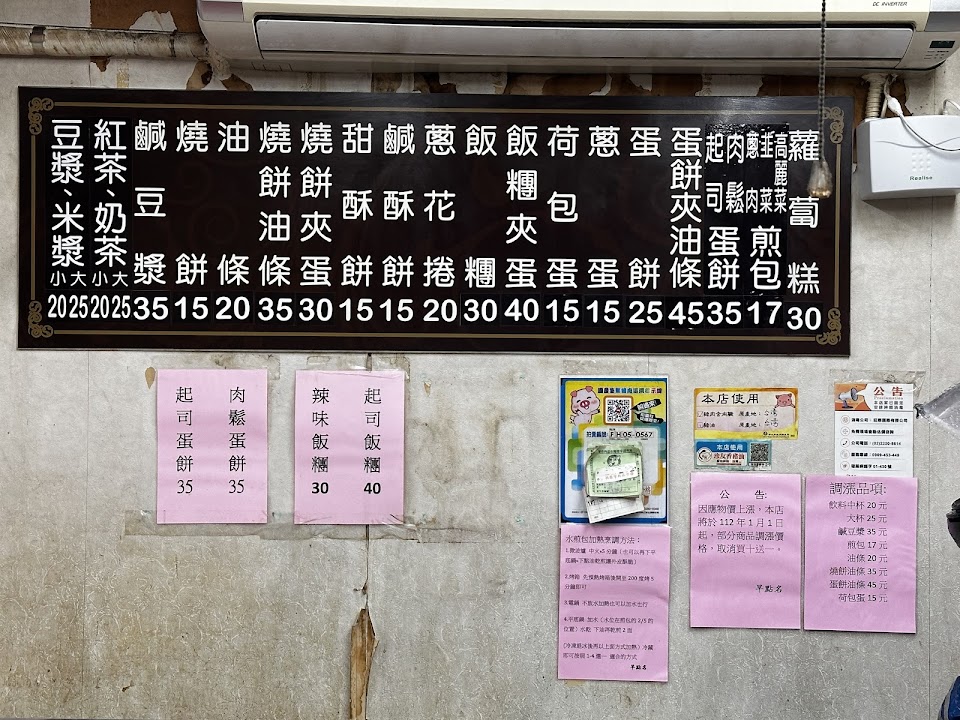 DC INVERTER
Realise
豆漿、米漿 小20 大25
紅茶、奶茶 小20 大25
鹹豆漿 35
燒餅 15
油條 20
燒餅油條 35
燒餅夾蛋 30
甜酥餅 15
鹹酥餅 15
蔥花捲 20
飯糰 30
飯糰夾蛋 40
荷包蛋 15
蔥蛋 15
蛋餅 25
蛋餅夾油條 45
起司 肉鬆 蛋餅 35
蔥肉 韭菜 高麗菜 煎包 17
蘿蔔糕 30
肉鬆蛋餅 35
起司蛋餅 35
起司飯糰 40
辣味飯糰 30
FH 05-0567
水煎包加熱烹調方法:
早點名
本店使用
台灣
台灣
本店使用
公告
公 告:
因應物價上漲,本店
將於 112 年 1 月 1 日
起,部分商品調漲價
格,取消買十送一。
早點名
調漲品項:
飲料中杯 20 元
大杯 25 元
鹹豆漿 35 元
煎包 17 元
油條 20 元
燒餅油條 35 元
蛋餅油條 45 元
荷包蛋 15 元